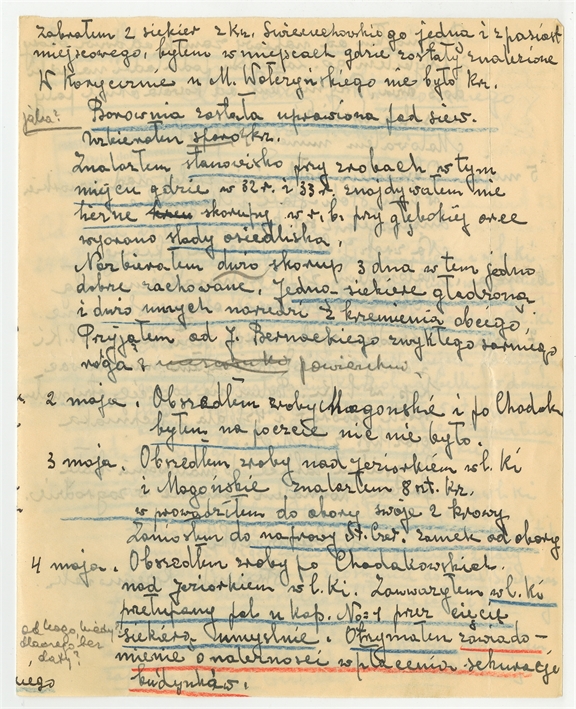 zabrałem 2 siekier z kr. Swierzchowskiego jedna i z pasiast
miejscowego, byłem w miejscach gdzie zostały znalezione
W Korycznie u M. Wołczyńskiego nie było kr.
jaka? Borownia została uprawiona pod siew.
Uzbierałem sporo kr.
Znalazłem stanowisko przy zrobach w tym
miejscu gdzie w 32 r. i 33 r. znajdywałem nie
liczne skorupy, w r. b. przy głębokiej orce
wyorano ślady osiedliska.
Nazbierałem dużo skorup 3 dna w tem jedno
dobrze zachowane. Jedna siekierę gładzoną
i dużo innych narzędzi z krzemienia obcego,
Przyjąłem od J. Bernackiego zwykłego sarniego
roga z powierzchni.
2 maja. Obszedłem zroby Magonskie i po Chodak
byłem na poczcie nic nie było.
3 maja. Obszedłem zroby nad Jeziorkiem w l. Ki
i Magońskie znalazłem 8 szt. kr.
wprowadziłem do obory swoje 2 krowy
Zaniosłem do naprawy St. Czer. zamek od obory
4 maja. Obszedłem zroby po Chodakowskich.
nad Jeziorkiem w l. Ki. Zauważyłem w l. Ki
przełupany pal u kop. No 1 przez cięcie
siekierą umyślnie. Otrzymałem zawiado-
mienie o należności wpłacenia sekuracje
budynków.
od kogo kiedy
dlaczego bez
daty?